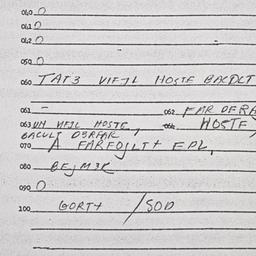 040 0
041 0
042 0
050 0
060 TAT3 VIFJL HOSTE BACDLT
061 - 062 FAR DERA
063 UN VIFJL HOSTE, HOSTE
BACULT DERFAR
070 A FARFOJLT+ EPL,
080 BEJM3R
090 0
100 GORT+ /SOD